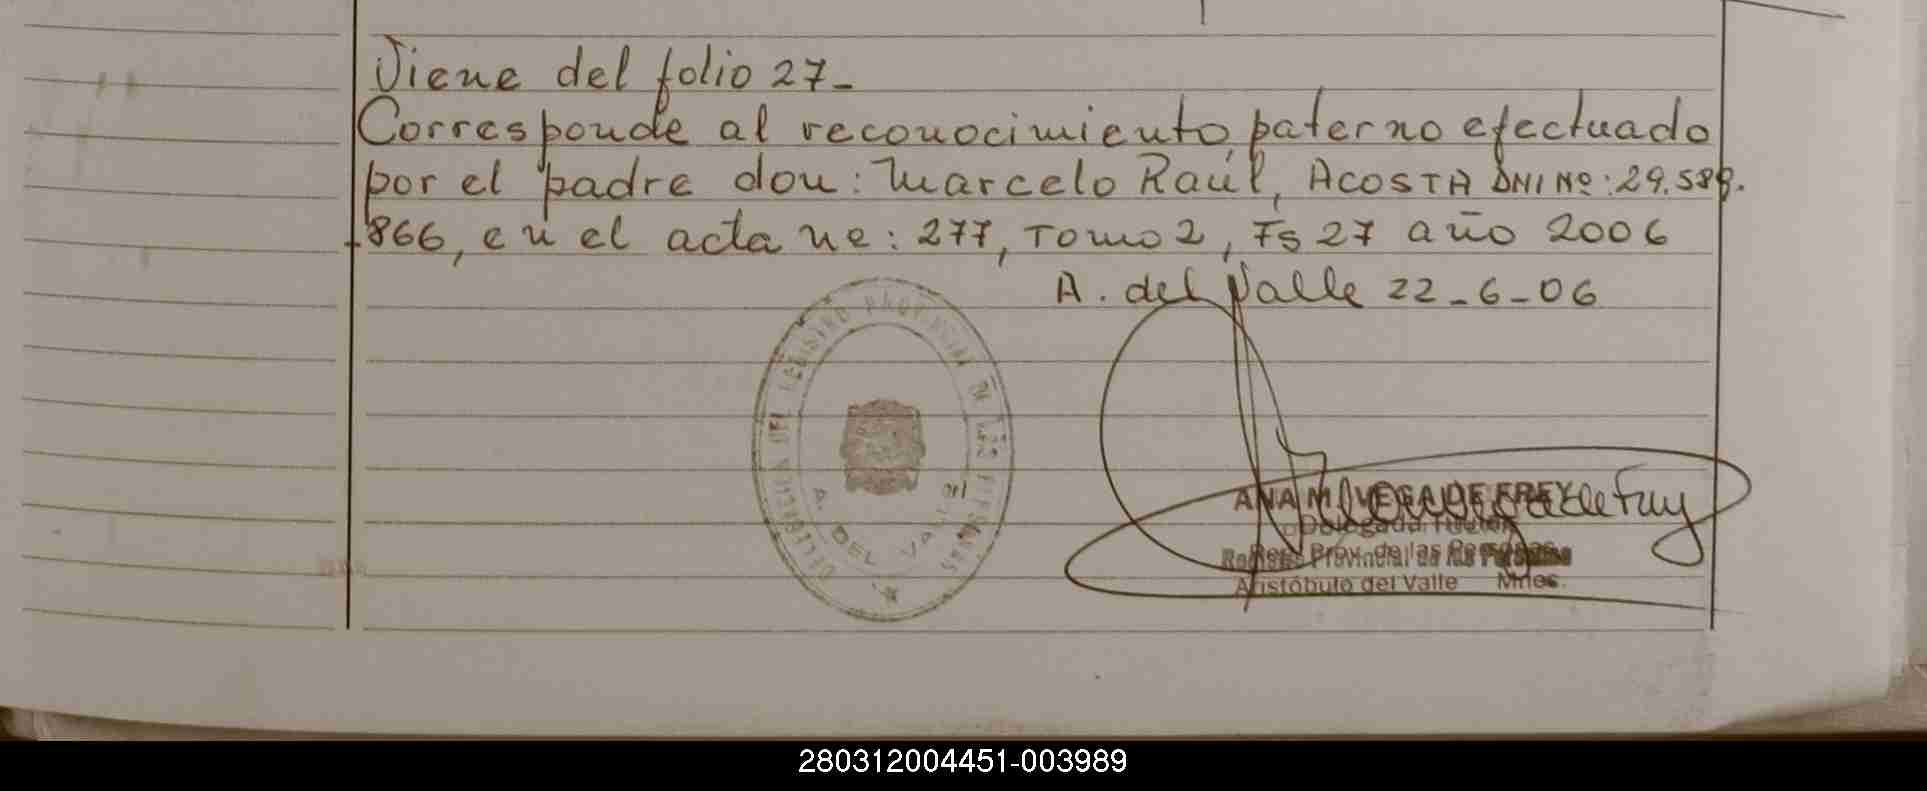 Viene del folio 27-
Corresponde al reconocimiento, paterno efectuado
por el padre don: Marcelo Raúl, ACOSTA DNI Nº: 29.589.
-866, en el acta nº: 277, Tomo 2, Fs 27 año 2006
A. del Valle 22-6-06
DELEGACION DEL REGISTRO PROVINCIAL DE LAS PERSONAS
A. DEL VALLE
ANA M. VEGA DE FREY
Delegada Titular
Reg. Prov. de las Personas
Aristóbulo del Valle Mnes.
280312004451-003989